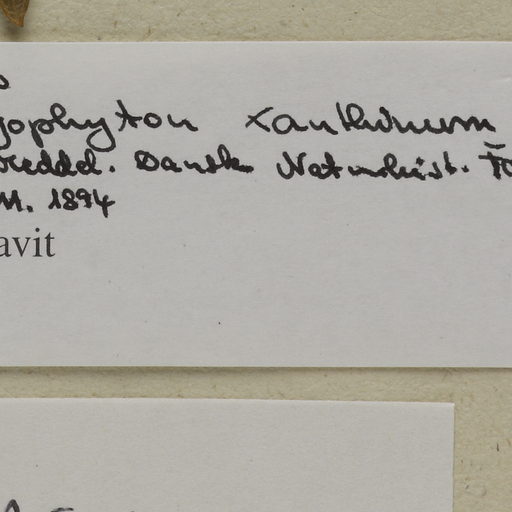 gophyton xanthinum
Meddel. Dansk Naturhist. Fo
M. 1894
avit